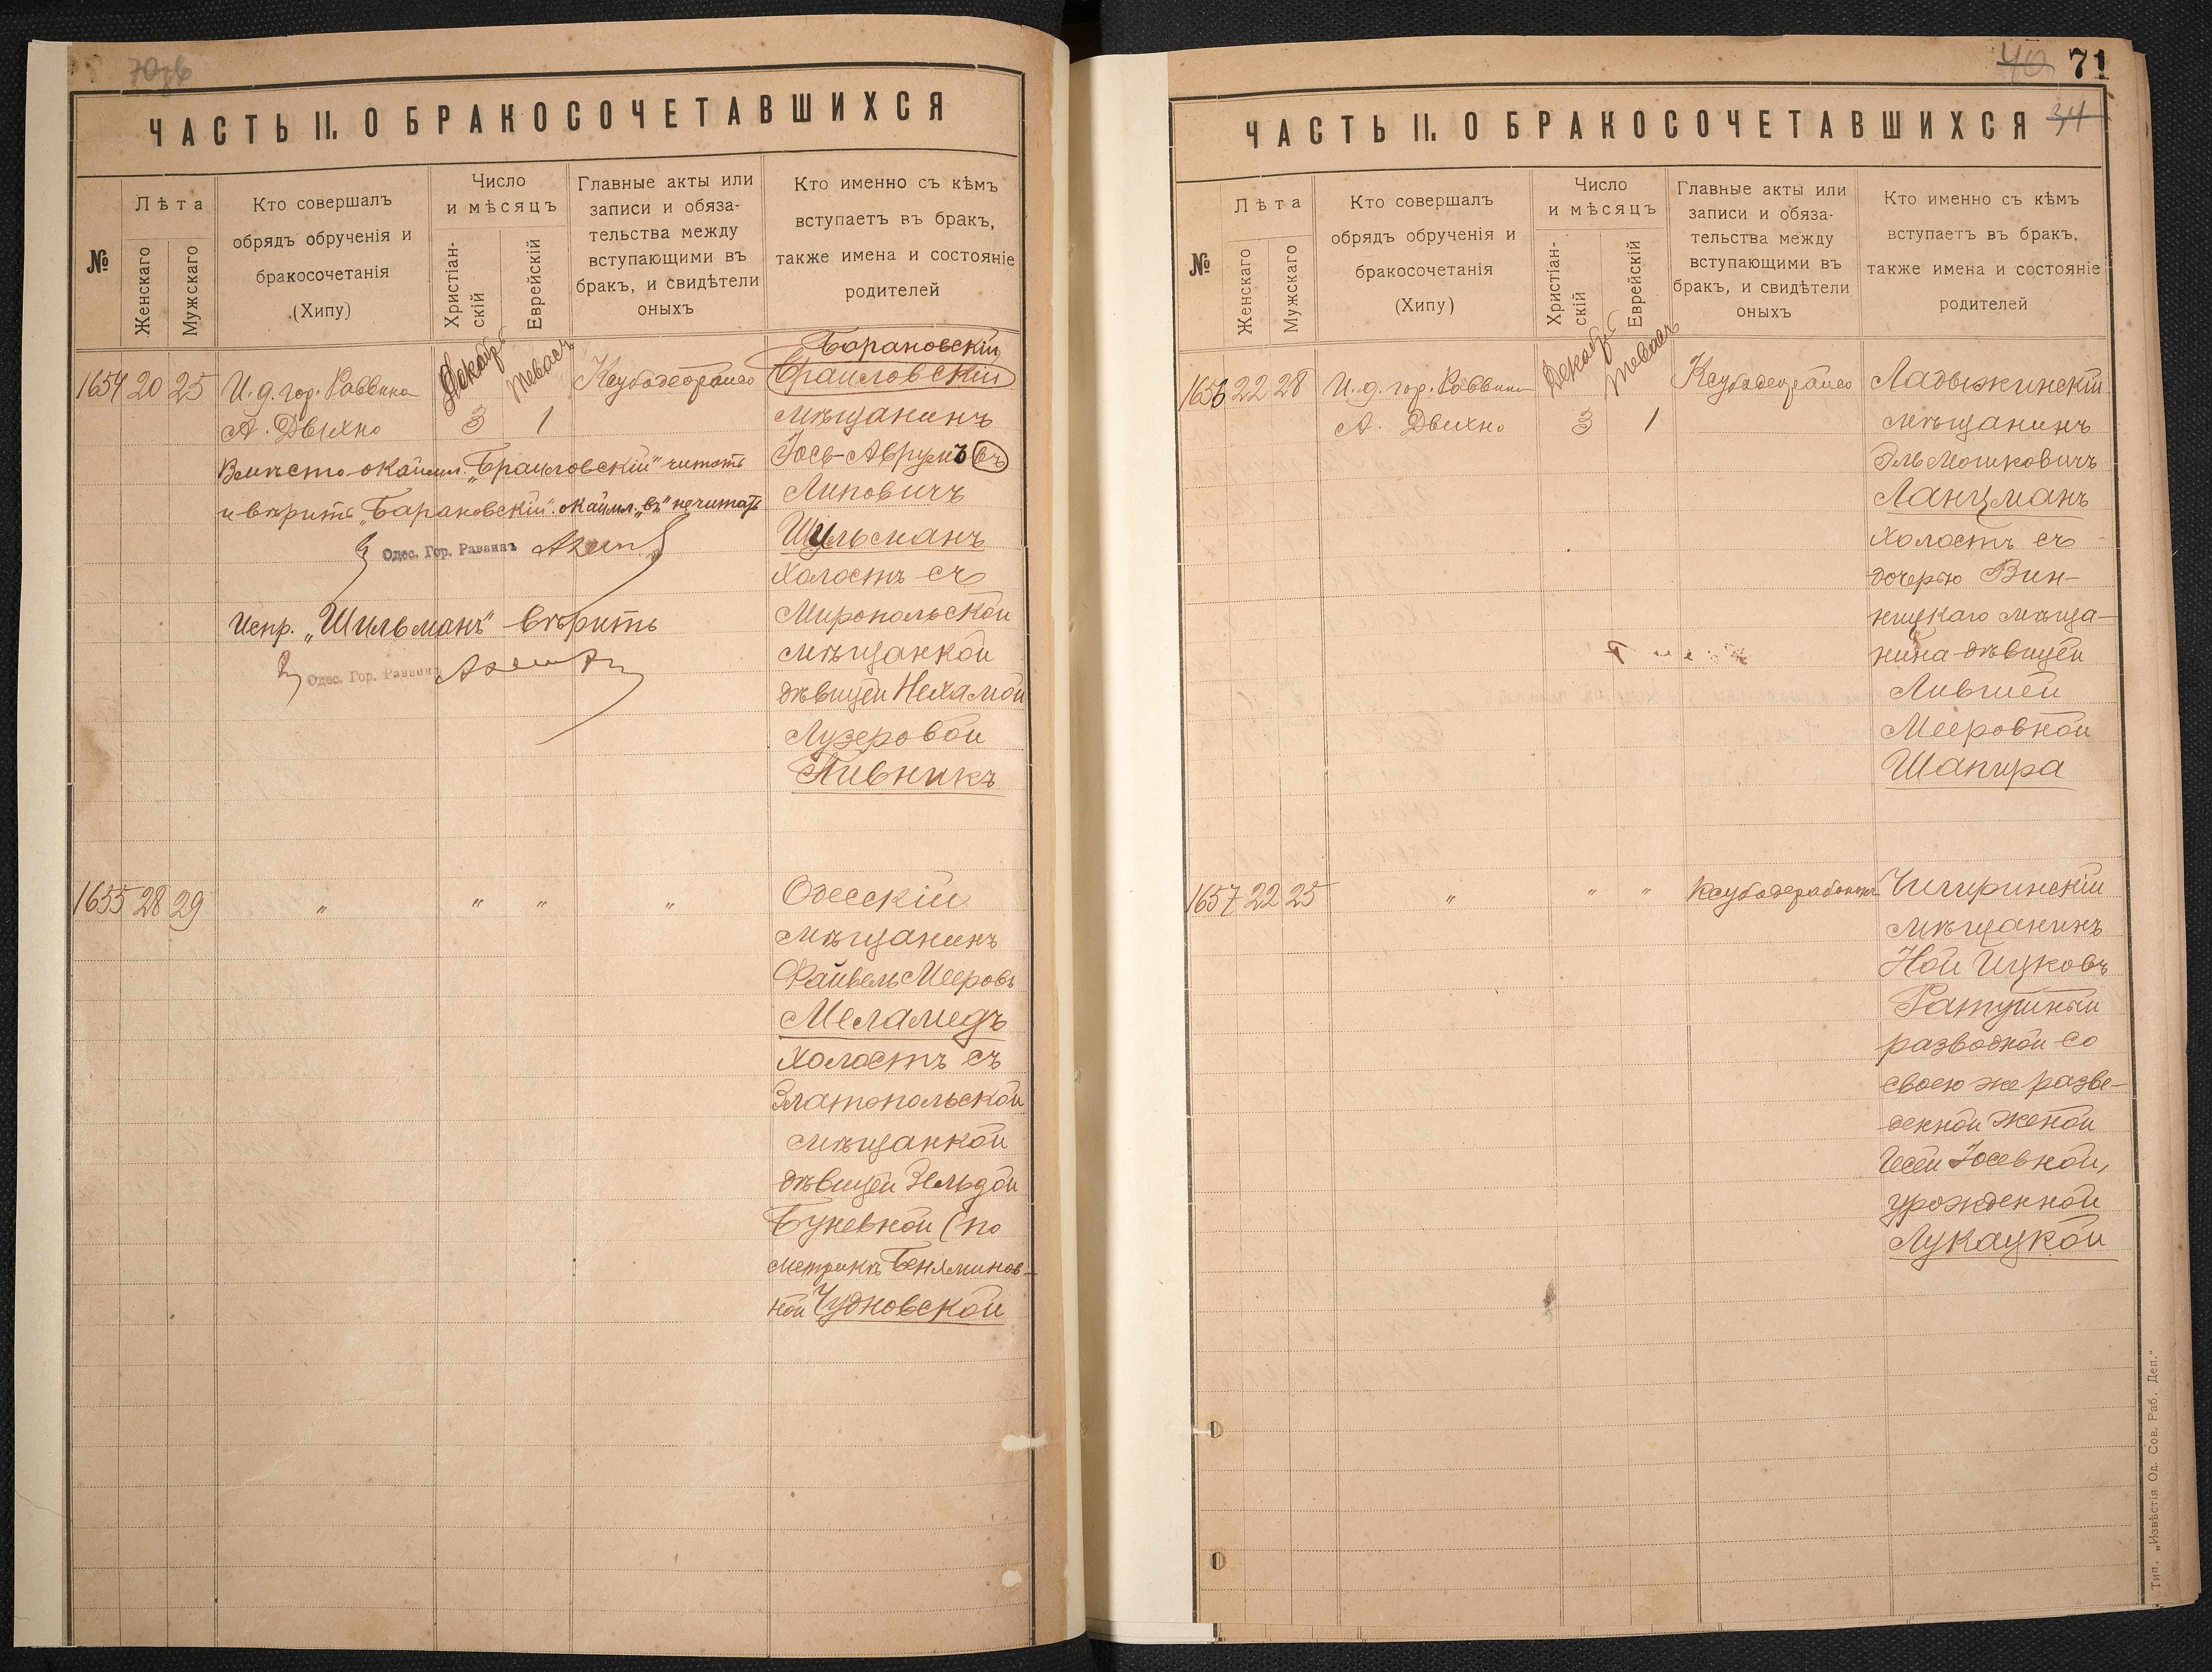 70зв
ЧАСТЬ II. О БРАКОСОЧЕТАВШИХСЯ
№
Лѣта
Женскаго
Мужскаго
Кто совершалъ
обрядъ обрученія и
бракосочетанія
(Хипу)
Число
и мѣсяцъ
Христіан-
скій
Еврейскій
Главные акты или
записи и обяза-
тельства между
вступающими въ
бракъ, и свидѣтели
оныхъ
Кто именно съ кѣмъ
вступаетъ въ бракъ,
также имена и состояніе
родителей
1654 20 25
И. д. гор. Раввина
А. Двихно
Декабр
3
Тевасъ
1
Барановскій
Браиловскій
мѣщанинъ
Іось-Аврумъ въ
Липовичъ
Шильманъ
холостъ съ
Миропольской
мѣщанкой
дѣвицей Нехамой
Лузеровой
Пивникъ
Вмѣсто окаймл. „Браиловскій" читать
и вѣрить „Барановскій". окаймл. „въ" не читать
Одес. Гор. Раввинъ
Испр. „Шильманъ" вѣрить
Одес. Гор. Раввинъ
1655 28 29 " " " "
Одесскій
мѣщанинъ
Файвель Мееровъ
Меламедъ
холостъ съ
Златопольской
мѣщанкой
дѣвицей Зельдой
Буневной (по
метрикѣ Беняминов-
ной Чудновской
40 71
34
ЧАСТЬ II. О БРАКОСОЧЕТАВШИХСЯ
№
Лѣта
Женскаго
Мужскаго
Кто совершалъ
обрядъ обрученія и
бракосочетанія
(Хипу)
Число
и мѣсяцъ
Христіан-
скій
Еврейскій
Главные акты или
записи и обяза-
тельства между
вступающими въ
бракъ, и свидѣтели
оныхъ
Кто именно съ кѣмъ
вступаетъ въ бракъ,
также имена и состояніе
родителей
1656 22 28
И. д. гор. Раввина
А. Двихно
Декабр
3
Тевасъ
1
Ладыжинскій
мѣщанинъ
Эль Мошковичъ
Ланцманъ
холостъ съ
дочерью Вин-
ницкаго мѣща-
нина дѣвицей
Лившей
Мееровной
Шапира
1657 22 25 " " "
Чигиринскій
мѣщанинъ
Ной Ицковъ
Ратушный
разводной со
своею же разве-
денной женой
Іосевной,
урожденной
Лукацкой
Тип. „Извѣстія Од. Сов. Раб. Деп."